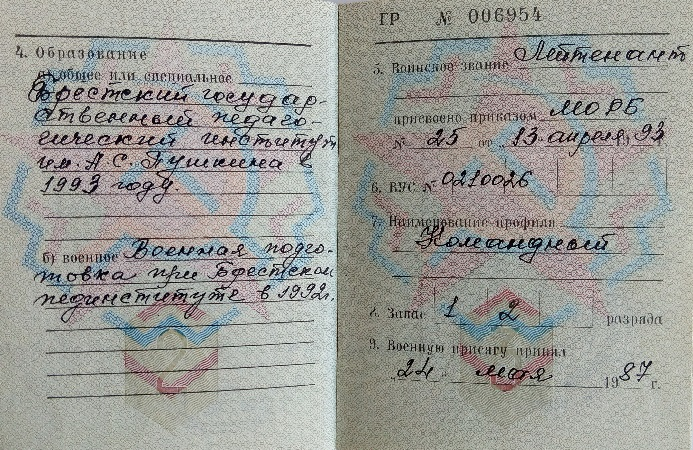 4. Образование
а) общее или специальное
Брестский государ-
ственный педаго-
гический институт
им. А.С. Пушкина в
1993 году.
б) военное Военная подго-
товка при Брестском
пединституте в 1992г.
ГР № 006954
5. Воинское звание Лейтенант
присвоено приказом МО РБ
№ 25 от „13“ апреля 1993
6. ВУС № 0210026
7. Наименование профиля
Командный
8. Запас 1 2 разряда
9. Военную присягу принял
„24“ мая 1987 г.